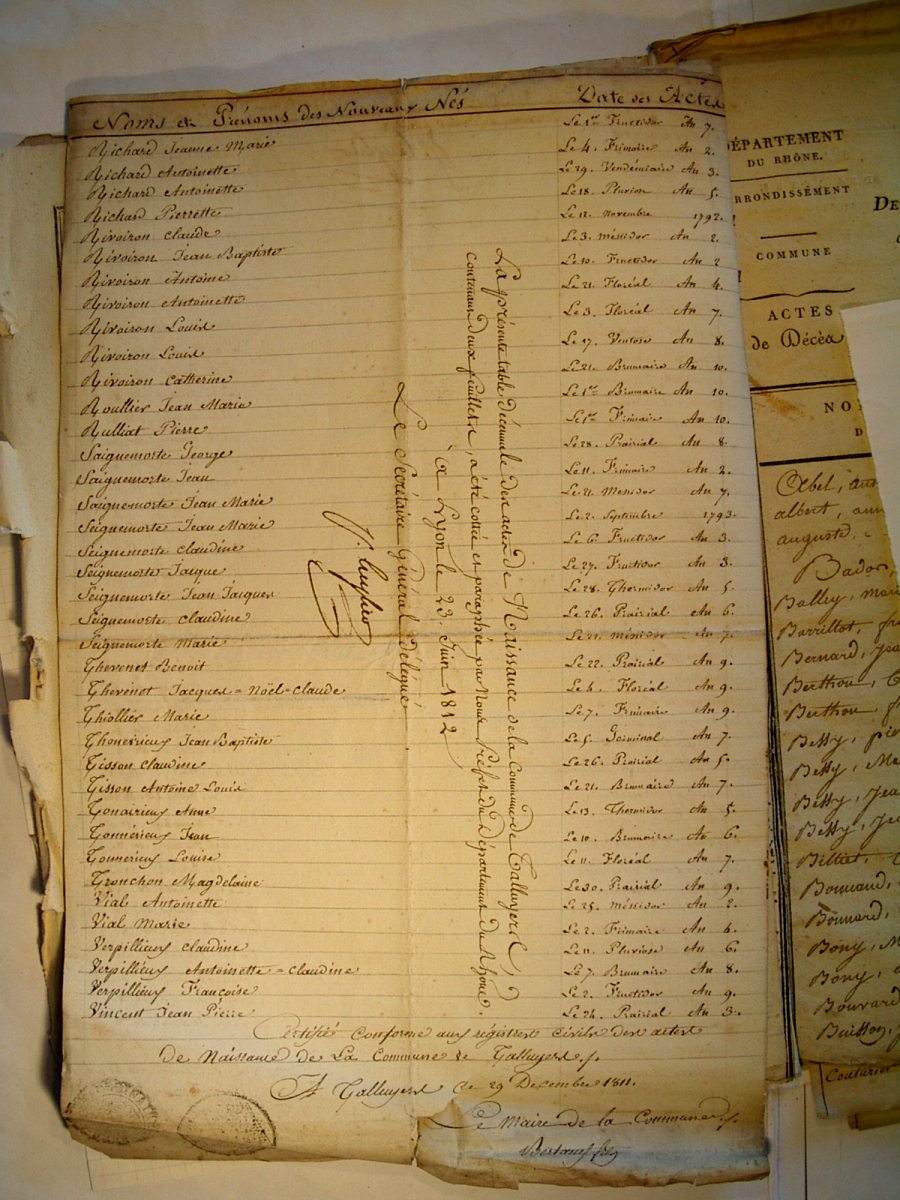 Noms et Prénoms des Nouveaux Nés Date des Actes
Richard Jeanne Marie Le 1er Fructidor An 7.
Richard Antoinette Le 4. Frimaire An 2.
Richard Antoinette Le 29. Vendémiaire An 3.
Richard Pierrette Le 18. Pluviose An 5.
Rivoiron Claude Le 12. Novembre 1792.
Rivoiron Jean Baptiste Le 3. Messidor An 2.
Rivoiron Antoine Le 10. Fructidor An 2
Rivoiron Antoinette Le 21. Floréal An 4.
Rivoiron Louise Le 3. Floréal An 7.
Rivoiron Louise Le 17. Ventose An 8.
Rivoiron Catherine Le 21. Brumaire An 10.
Roullier Jean Marie Le 1er Brumaire An 10.
Rulliat Pierre Le 1er Frimaire An 10.
Saignemorte George Le 28. Prairial An 8.
Saignemorte Jean Le 11. Frimaire An 2.
Saignemorte Jean Marie Le 21. Messidor An 7.
Seignemorte Jean Marie Le 2. Septembre 1793.
Seignemorte Claudine Le 6. Fructidor An 3.
Seignemorte Jacque Le 27. Fructidor An 3.
Seignemorte Jean Jacques Le 28. Thermidor An 5.
Seignemorte Claudine Le 26. Prairial An 6.
Seignemorte Marie Le 21. Messidor An 7.
Thevenet Benoit Le 22. Prairial An 9.
Thevenet Jacques=Noël=Claude Le 4. Floréal An 9.
Thiollier Marie Le 7. Frimaire An 9.
Thonerieux Jean Baptiste Le 5. Germinal An 7.
Tisson Claudine Le 26. Prairial An 5.
Tisson Antoine Louis Le 21. Brumaire An 7.
Tonairieux Anne Le 13. Thermidor An 5.
Tonnerieux Jean Le 10. Brumaire An 6.
Tonnerieux Louise Le 11. Floréal An 7.
Tronchon Magdelaine Le 30. Prairial An 9.
Vial Antoinette Le 25. Messidor An 2.
Vial Marie Le 2. Frimaire An 4.
Verpillieux Claudine Le 11. Pluviose An 6.
Verpillieux Antoinette=Claudine Le 7. Brumaire An 8.
Verpillieux Françoise Le 2. Fructidor An 9.
Vincent Jean Pierre Le 24. Prairial An 3.
Certifié conforme aux régistres civils des actes
de Naissance de La Commune de Talluyers.
A Talluyers Le 29 Décembre 1811.
Le Maire de la Commune
La présente table décennale des actes de Naissance de la Commune de Talluyers,
Contenant deux feuillets, a été cotée et paraphée par Nous Préfet du Département du Rhône.
à Lyon le 23 Juin 1812
Le Secrétaire Général délégué
DÉPARTEMENT
DU RHÔNE.
RRONDISSEMENT
COMMUNE
ACTES
de Décès
DE
NO
D
Abel,
albert,
auguste,
Badon,
Balley,
Barrillot,
Bernard,
Berthou,
Berthou
Betty,
Betty,
Betty,
Betty,
Billet,
Bonnand,
Bonnard,
Bony,
Bony,
Bouvard
Buisson,
Couturier